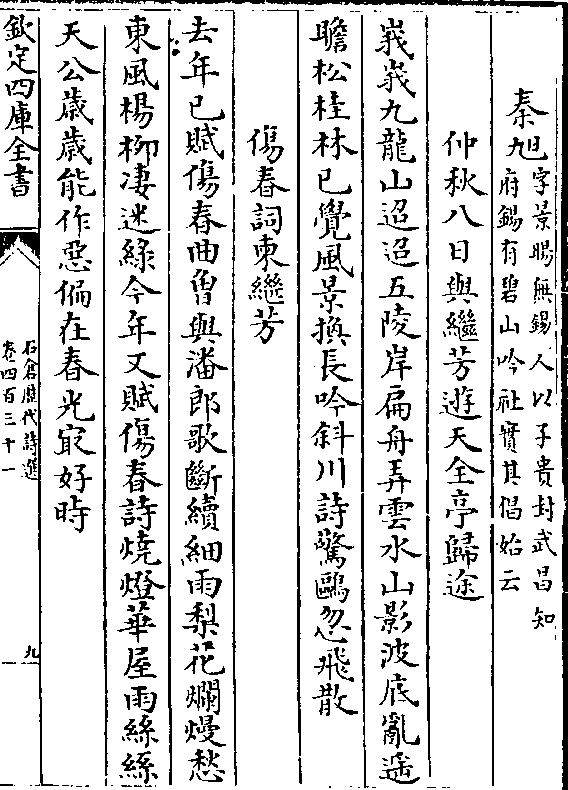 秦旭字景暘無錫人以子贵封武昌知
府錫有碧山吟社實其倡始云
仲秋八日與繼芳遊天全亭歸途
峩峩九龍山迢迢五陵岸扁舟弄雲水山影波底亂遥
瞻松桂林已覺風景換長吟斜川詩驚鷗忽飛散
傷春詞柬繼芳
去年已賦傷春曲曽與潘郎歌斷續細雨梨花爛熳愁
東風楊柳凄迷綠今年又賦傷春詩燒燈華屋雨絲絲
天公歲歲能作惡偏在春光㝡好時
欽定四庫全書
石倉歷代詩選
卷四百三十一
九